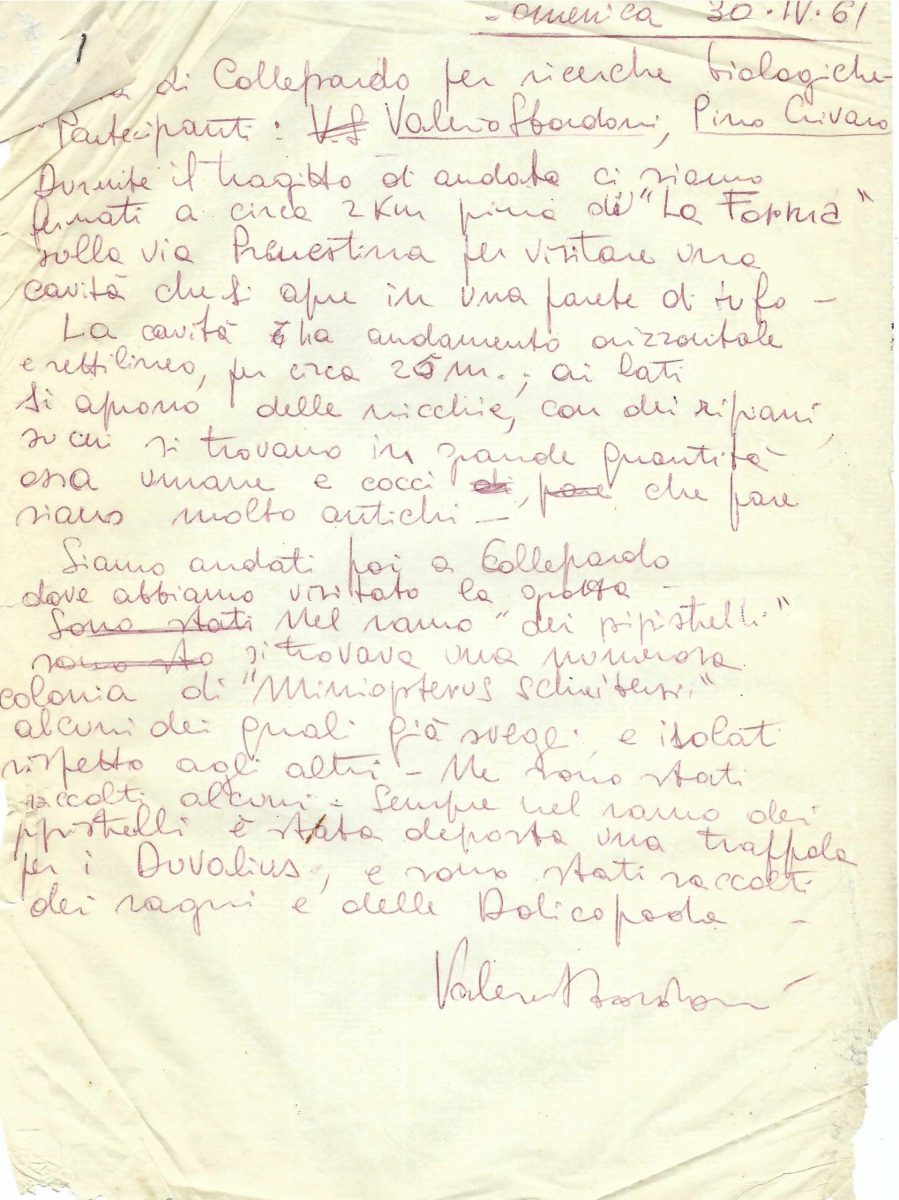 omenica 30·IV·61
di Collepardo per ricerche biologiche-
Partecipanti: V.S Valerio Sbordoni, Pino Crivaro
Durnite il tragitto di andata ci siamo
fermati a circa 2 Km prima di "La Forma"
sulla via Prenestina per visitare una
cavità che si apre in una parete di tufo -
La cavità è ha andamento orizzontale
e rettilineo, per circa 25 m.; ai lati
si aprono delle nicchie, con dei ripiani,
su cui si trovano in grande quantità
ossa umane e cocci di, pare che pare
siano molto antichi -
Siamo andati poi a Collepardo
dove abbiamo visitato la grotta -
Sono stati Nel ramo "dei pipistrelli"
sono sto si trovava una numerosa
colonia di "Miniopterus schreibersi"
alcuni dei quali già svegli e isolati
rispetto agli altri - Ne sono stati
raccolti alcuni - Sempre nel ramo dei
ppistrelli è stata deposta una trappola
per i Duvalius, e sono stati raccolti
dei ragni e delle Dolicopoda -
Valerio Sbordoni